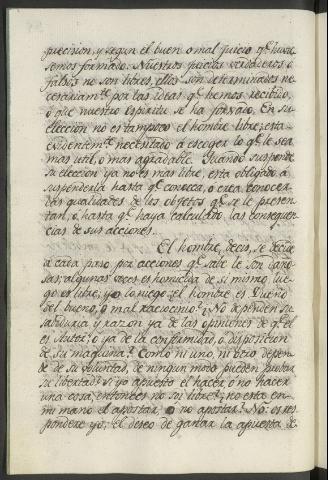 precision, y segun el buen o mal juicio q.e huvie
semos formado. Nuestros juicios verdaderos o
falsos no son libres, ellos son determinados ne
cesariam.te por las ideas q.e hemos recibido,
ó que nuestro espiritu se ha formado. En su
eleccion no es tampoco el hombre libre; esta
evidentem.te necesitado á escoger lo q.e le sea
mas util, ó mas agradable. Quando suspende
su eleccion ya no es mas libre, esta obligado á
suspenderla hasta q.e conozca, ó crea conocer
las qualidades de los objetos q.e se le presen
tan, ó hasta q.e haya calculado las consequen
cias de sus acciones.
El hombre, decis, se decide
á cada paso por acciones q.e sabe le son daño
sas; algunas veces es homicida de si mismo lue
go es libre, yo lo niego. el hombre es dueño
del bueno, ó mal raciocinio? ¿No dependen su
sabiduria y razon ya de las opiniones de q.e él
es Autor; ó ya de la conformidad, ó disposicion
de su maquina? Como ni uno, ni otro depen
de de su voluntad, de ningun modo pueden probar
su libertad. Si yo apuesto el hacer, ó no hacer
una cosa, entonces no soi libre? no esta en
mi mano el apostar, ó no apostar? No: os res
pondere yo; el deseo de ganar la apuesta de